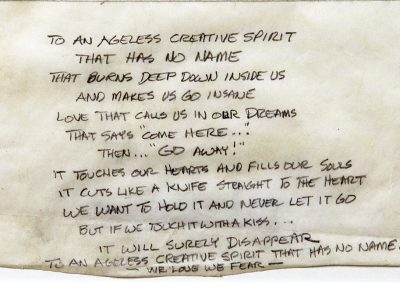 TO AN AGELESS CREATIVE SPIRIT
THAT HAS NO NAME
THAT BURNS DEEP DOWN INSIDE US
AND MAKES US GO INSANE
LOVE THAT CALLS US IN OUR DREAMS
THAT SAYS "COME HERE..."
THEN... "GO AWAY!"
IT TOUCHES OUR HEARTS AND FILLS OUR SOULS
IT CUTS LIKE A KNIFE STRAIGHT TO THE HEART
WE WANT TO HOLD IT AND NEVER LET IT GO
BUT IF WE TOUCH IT WITH A KISS...
IT WILL SURELY DISAPPEAR
TO AN AGELESS CREATIVE SPIRIT THAT HAS NO NAME.
— WE LOVE WE FEAR —